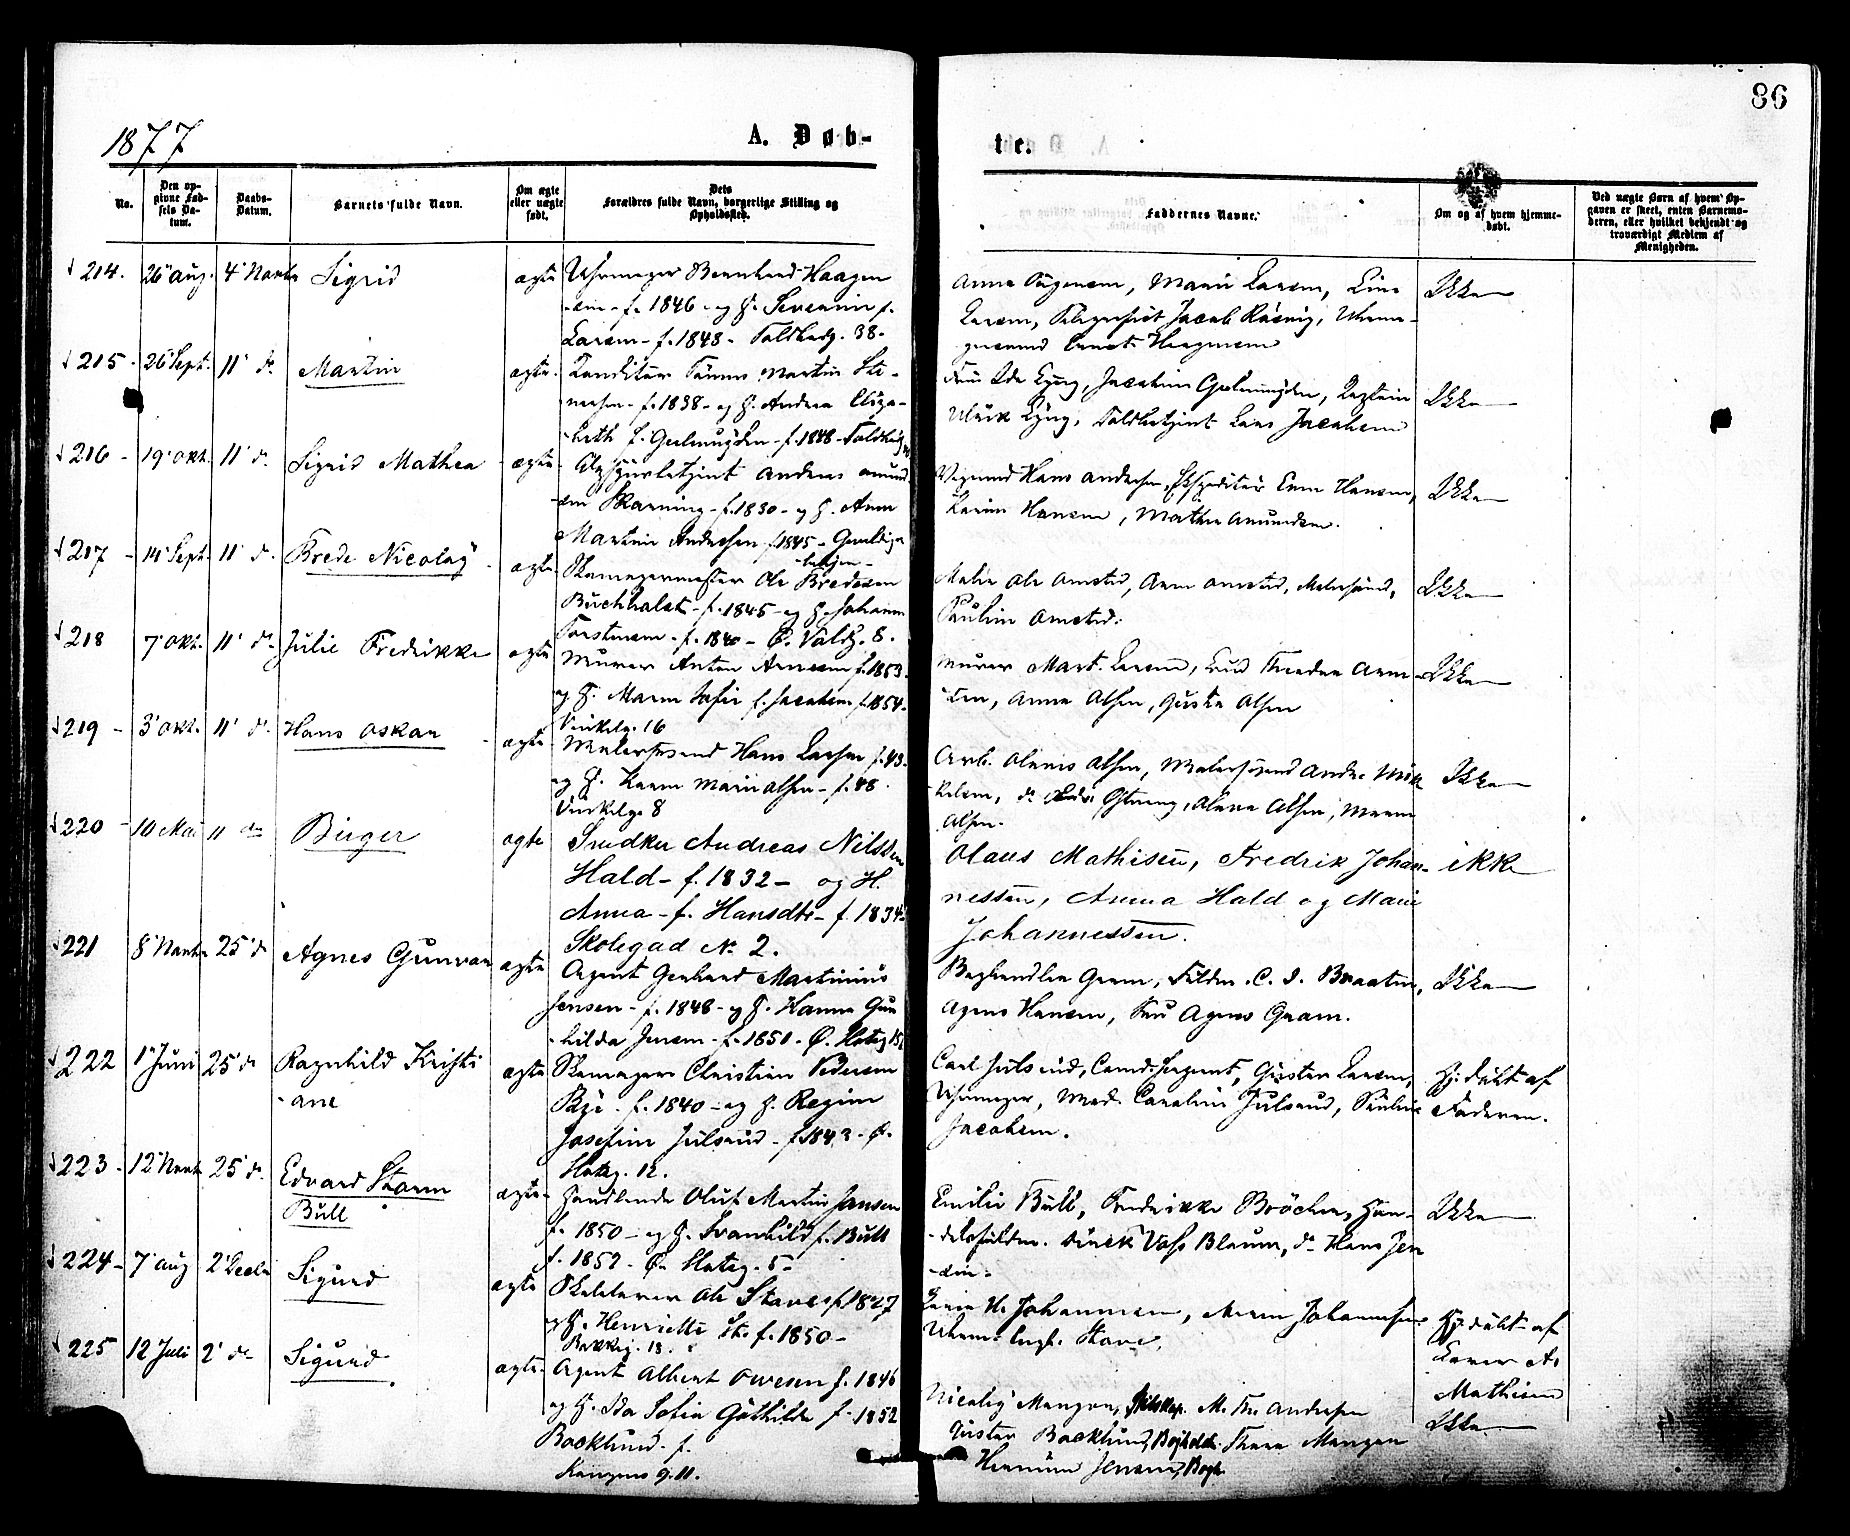 86
1877
A. Døb-
te.
No.
Den op-
givne Fød-
sels Da-
tum.
Daabs-
Datum.
Barnets fulde Navn.
Om ægte
eller uægte
født.
Dets
Forældres fulde Navn, borgerlige Stilling og
Opholdssted.
Faddernes Navne.
Om og af hvem hjemme-
døbt.
Ved uægte Børn af hvem Op-
gaven er skeet, enten Barnemo-
deren, eller hvilket bekjendt og
troværdigt Medlem af
Menigheden.
214. 26 Aug. 4 Novbr Sigrid ægte Uhrmager Bernhard Haagen
sen - f. 1846 - og H. Severine f.
Larsen - f. 1848 - Toldbodg. 38.
Anna Jørgensen, Marie Larsen, Line
Larsen, Telegrafist Jacob Rasvig, Uhrma-
Ikke
215 26 Sept. 11 d. Martin ægte Konditor Tønnes Martin Ste-
nersen - f. 1838 - og H. Andrea Eliza-
beth f. Gulmugden - f. 1848 - Toldbodg
Fru Ida Lyng, Jacobine Gulmugden, Kaptein
Ulrik Lyng, Toldbetjent Lars Jacobsen
Ikke
216 - 19 Okt. 11 d. Sigrid Mathea ægte Opsynsbetjent Andreas Amund-
sen Skarning - f. 1830 - og H. Anne
Martine Andersen f. 1845 -
Vognmd Hans Andersen, Expeditør Even Hansen,
Karine Hansen, Mathea Amundsen.
Ikke
217 - 14 Sept. 11 d. Brede Nicolay ægte Skomagermester Ole Bredesen
Buchholdt - f. 1845 - og H. Johanne
Torstensen - f. 1840 - Ø. Voldg. 8.
Maler Ole Amsted, Anne Amsted, Malersvend,
Pauline Amsted.
Ikke
218 7 Okt. 11 d. Julie Fredrikke ægte Murer Anton Arnesen f. 1853
og H. Maren Sofie f. Jacobsen f. 1854
Vinkelg. 16
Murer Mart. Larsen, Thea Arne-
sen, Anna Olsen, Gusta Olsen
Ikke
219 - 3 Okt. 11 d. Hans Oskar - ægte Malersvend Hans Larsen f. 43
og H. Karen Marie Olsen - f. 48
Vinkelg. 8
Arb. Olaves Olsen, Malersvend Andr. Mik
kelsen, do. Østreng, Olava Olsen, Maren
Olsen.
Ikke
220 - 10 Mai 11 do Birger ægte Snedker Andreas Nilssen
Hald - f. 1832 - og H.
Anna - f. Hansdtr - f. 1834
Skolegad No 2.
Olaus Mathisen, Fredrik Johan-
nessen, Anna Hald og Marie
Johannessen.
ikke
221 8 Novbr 25 d Agnes Gunvor ægte Agent Gerhard Martinius
Jensen - f. 1848 - og H. Hanna Gun
hilda Jensen - f. 1851 - Ø. Slotsg 15
Boghandler Gram, Fuldm. C. I. Braaten,
Agnes Hansen, Fru Agnes Gram.
Ikke
222 1 Juni 25 d Ragnhild Kristi
-ane ægte Skomager Christian Pedersen
Bye - f. 1840 - og H. Regine
Josefine Julsrud - f. 1843 - Ø.
Slotsg. 12.
Carl Julsrud, Comd. Sergent, Gustav Larsen,
Uhrmager, Mad. Caroline Julsrud, Pauline
Jacobsen.
Hj. døbt af
Faderen.
223 - 12 Novb 25 d. Edvard Storm
Bull ægte - Handlende Oluf Martin Jansen
f. 1850 - og H. Svanhild f. Bull
f. 1852 - Ø. Slotsg. 5 -
Emilie Bull, Fredrikke Bröcher, Han-
delsfuldm. Dirck Voss Blaum, do Hans Jen
sen -
Ikke
224 - 7 Aug 2 Decbr Sigurd ægte Ole Stave f. 1827
og H. Henriette St. f. 1850 -
Bakkeg. 13.
Karen M. Johannesen, Maren Johannesen,
Uhrm. Engb. Stave.
Hj. døbt af
A.
Mathisen
225 12 Juli 2 do Sigurd ægte. Agent Albert Owesen f. 1846
og H. Ida Sofia Gøthilda f. 1852
Backlund. f.
Kongens g. 11.
Nicolay Mangor, Skibskap. M. Th. Andresen
Gustav Backlund, Bogholdr. Thora Mangor
Hermine Jensen, Bogh.
Ikke